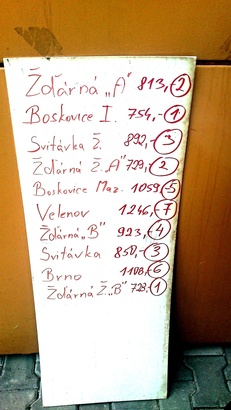 Žďárná "A" 813,- 2
Boskovice I. 754,- 1
Svitávka Ž. 892,- 3
Žďárná Ž. A" 729,- 2
Boskovice Maz. 1059,- 5
Velenov 1246,- 7
Žďárná „B" 923,- 4
Svitávka 850,- 3
Brno 1108,- 6
Žďárná Ž. „B" 723,- 1